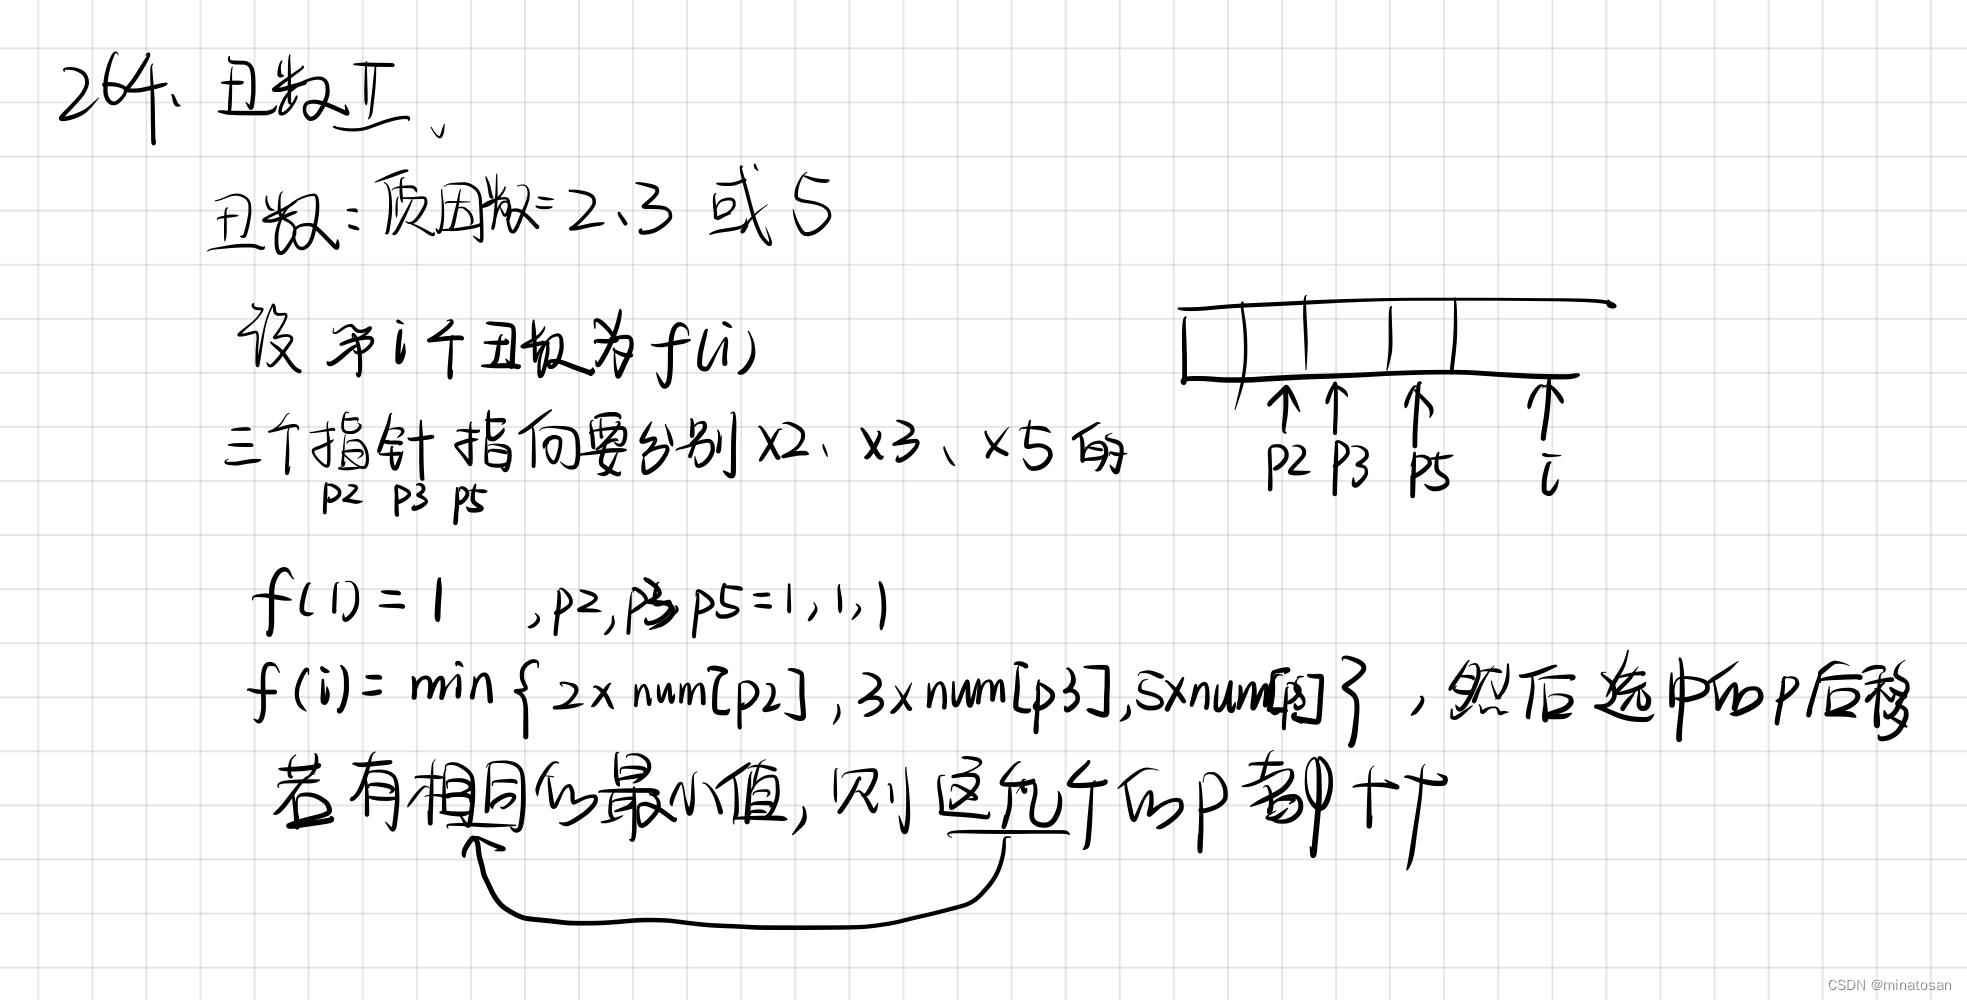 264、丑数 II、
丑数：质因数=2、3 或 5
设 第 i 个 丑数 为 f(i)
三个指针 指向要分别 ×2、×3、×5 的
p2 p3 p5
p2 p3 p5 i
f(1) = 1 , p2, p3, p5 = 1, 1, 1
f(i) = min { 2× num[p2] , 3× num[p3] , 5×num[p5] } , 然后 选中的 p 后移
若有相同的最小值, 则 这几个的 p 都 ++
CSDN @minatosan